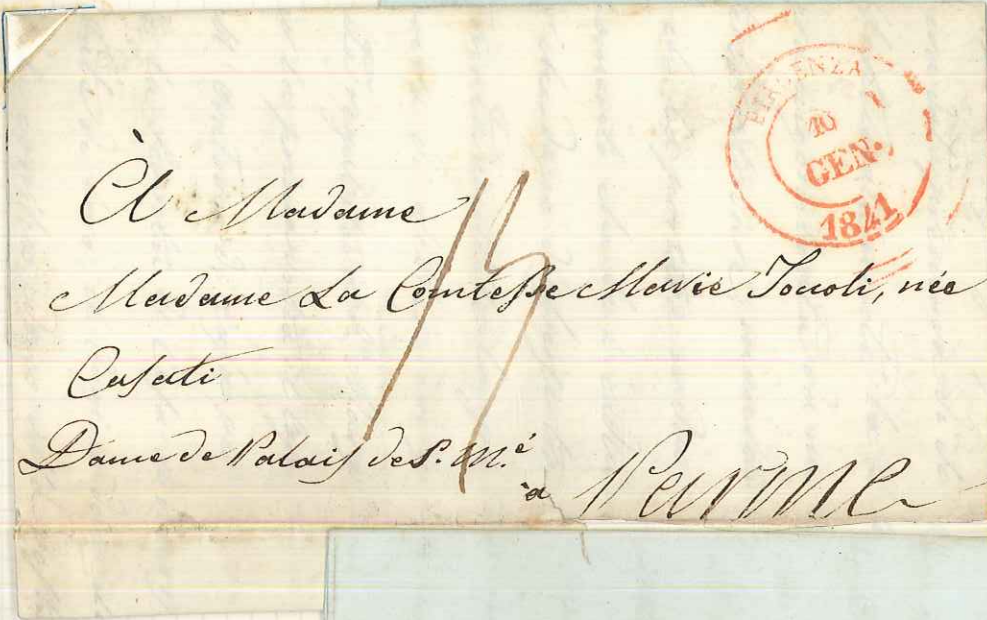 PIACENZA
10
GEN.
1841
À Madame
Madame La Comtesse Marie Jouoli, née
Casati
Dame de Palais de S. M.é
à Parme